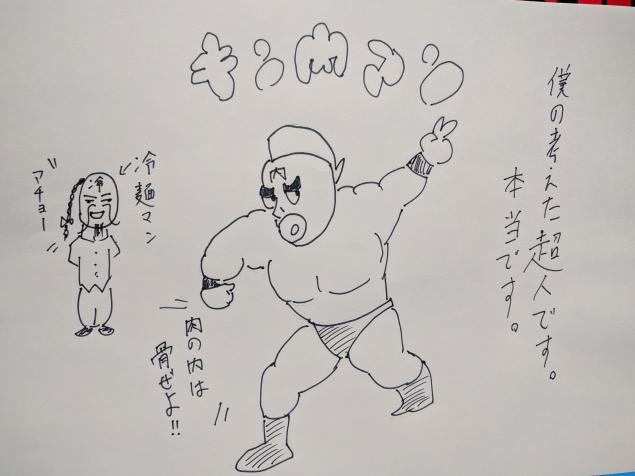 キン肉マン
僕の考えた超人です。
本当です。
内
冷麺マン
冷
アチョー
肉の内は
骨ぜよ!!